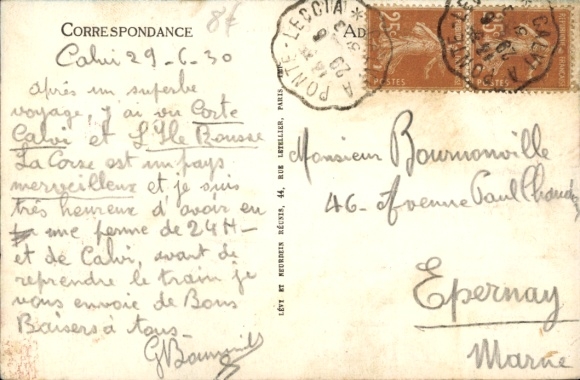 CORRESPONDANCE
8f
Calvi 29-6-30
après un superbe
voyage, j'ai vu Corte
Calvi et L'Ile Rousse
La Corse est un pays
merveilleux et je suis
très heureux d'avoir eu
une perme de 24H-
et de Calvi, avant de
reprendre le train je
vous envoie de Bons
Baisers à tous-
LÉVY ET NEURDEIN RÉUNIS, 44, RUE LETELLIER, PARIS
Ad
CALVI A PONTE-LECCIA
25c
POSTES
25c
POSTES
Monsieur Bournonville
46- Avenue Paul Chandon
Epernay
Marne